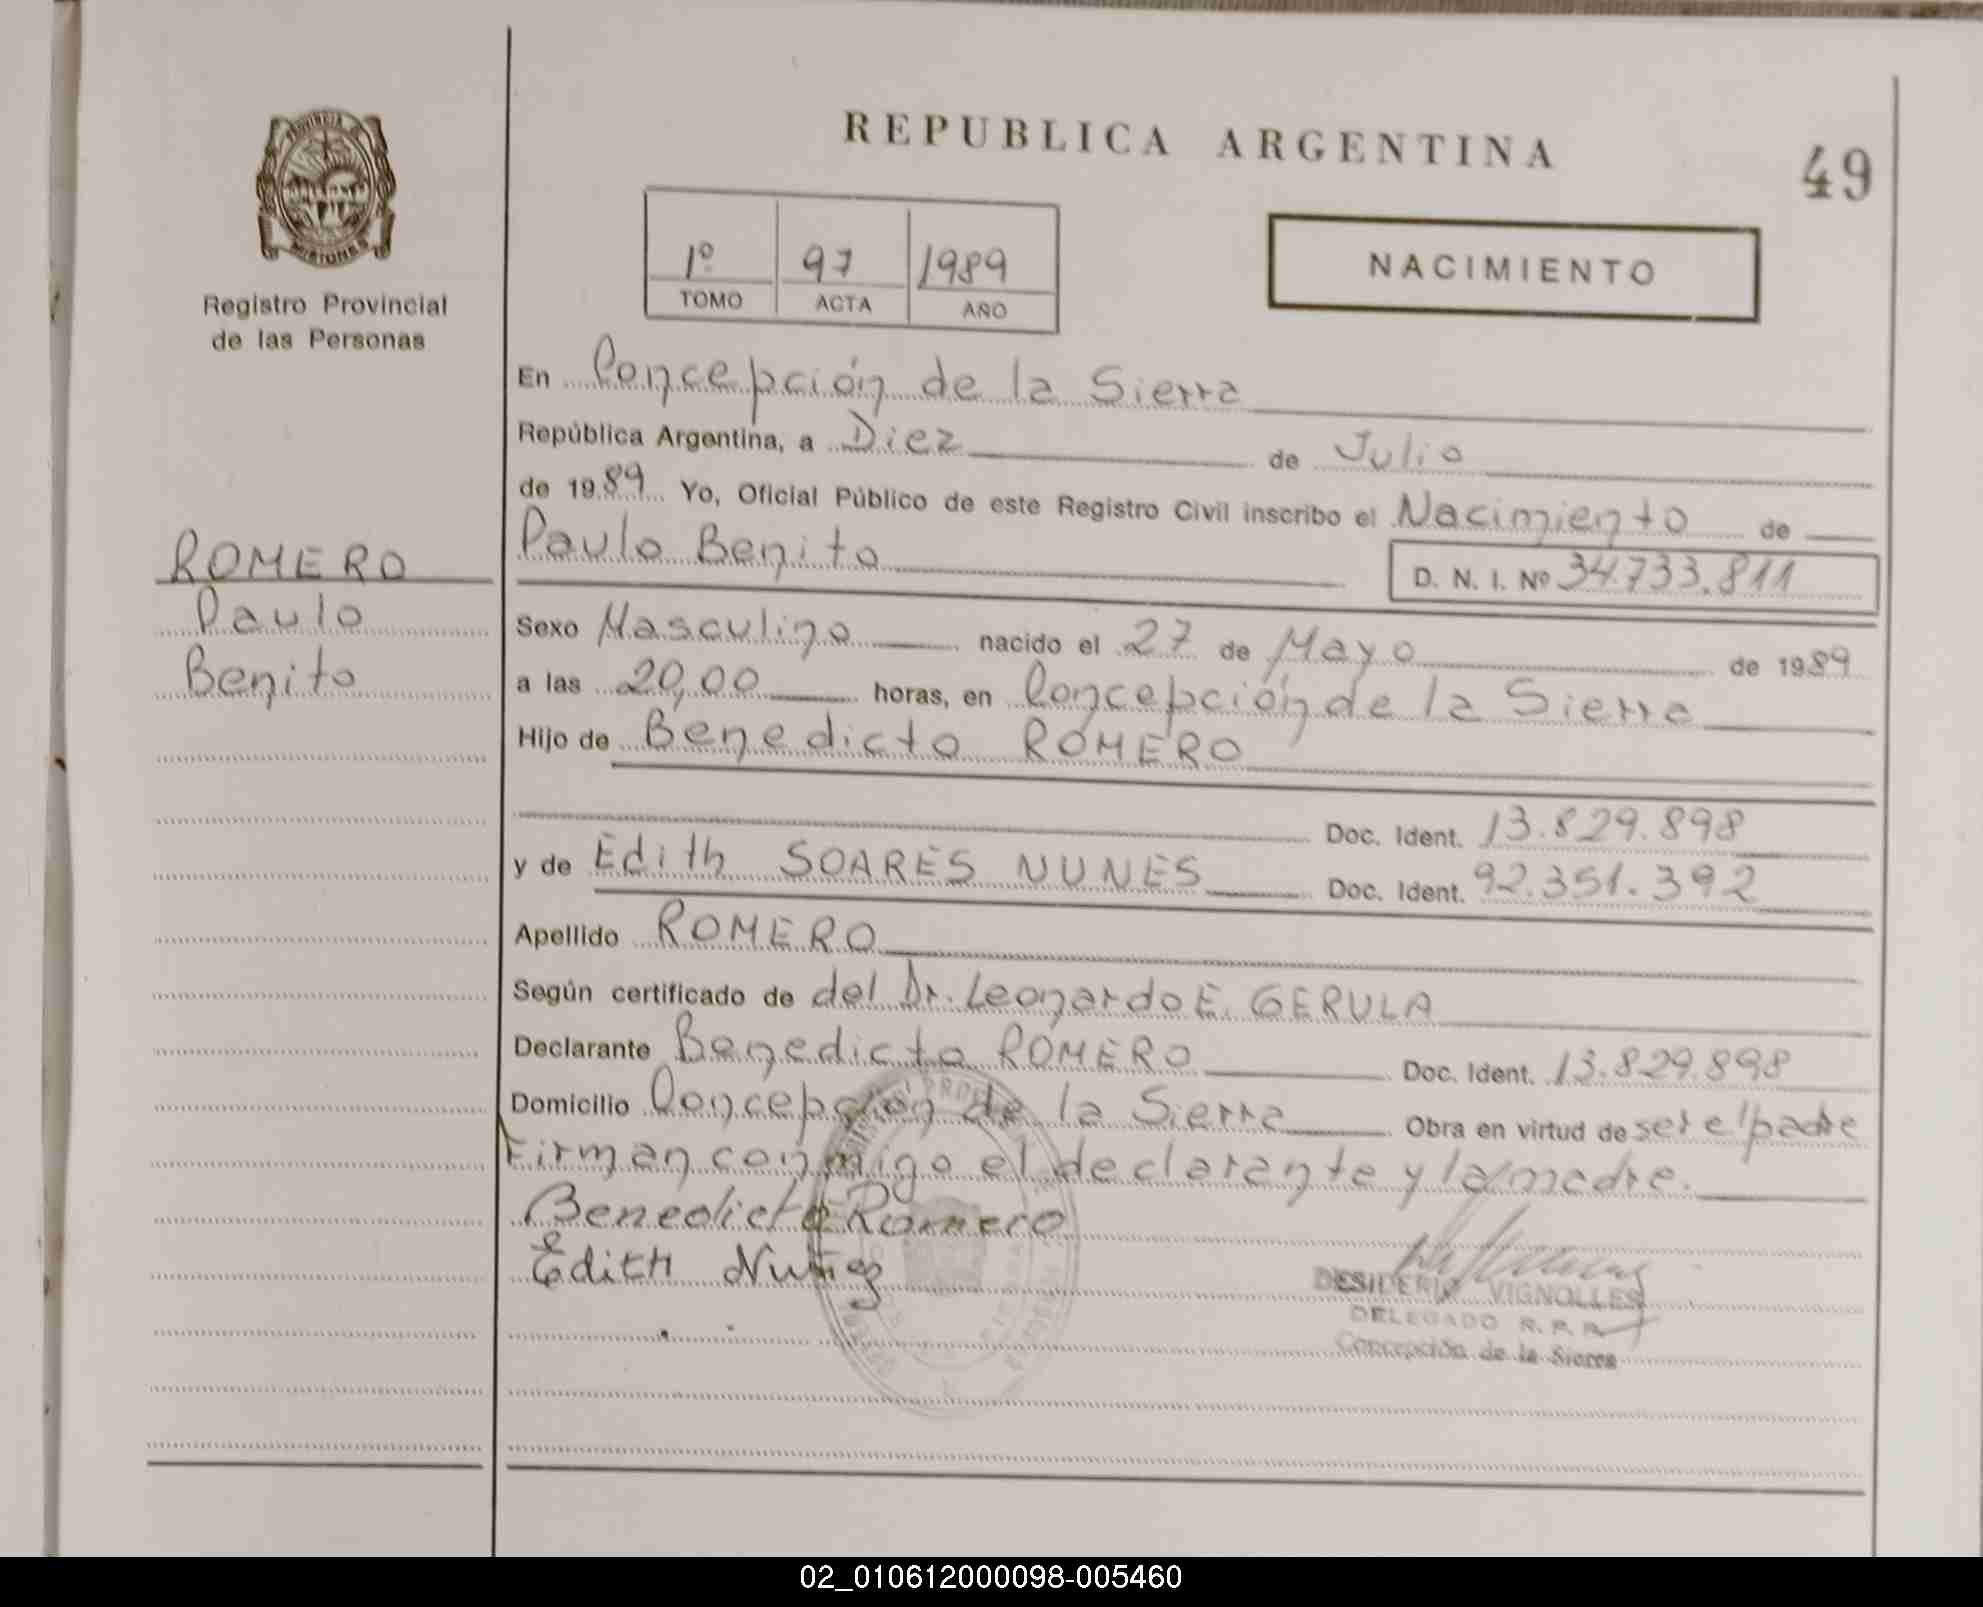 REPUBLICA ARGENTINA
49
PROVINCIA DE
MISIONES
Registro Provincial
de las Personas
1º 97 1989
TOMO ACTA AÑO
NACIMIENTO
En Concepción de la Sierra
República Argentina, a Diez de Julio
de 1989 Yo, Oficial Público de este Registro Civil inscribo el Nacimiento de
Paulo Benito D. N. I. Nº 34.733.811
ROMERO
Paulo
Benito
Sexo Masculino nacido el 27 de Mayo de 1989
a las 20,00 horas, en Concepción de la Sierra
Hijo de Benedicto ROMERO
Doc. Ident. 13.829.898
y de Edith SOARES NUNES Doc. Ident. 92.351.392
Apellido ROMERO
Según certificado de del Dr. Leonardo E. GERULA
Declarante Benedicto ROMERO Doc. Ident. 13.829.898
Domicilio Concepción de la Sierra Obra en virtud de ser el padre
Firman conmigo el declarante y la madre.
Benedicto Romero
Edith Nuñes
DESIDERIO VIGNOLLES
DELEGADO R.P.P.
Concepción de la Sierra
02_010612000098-005460